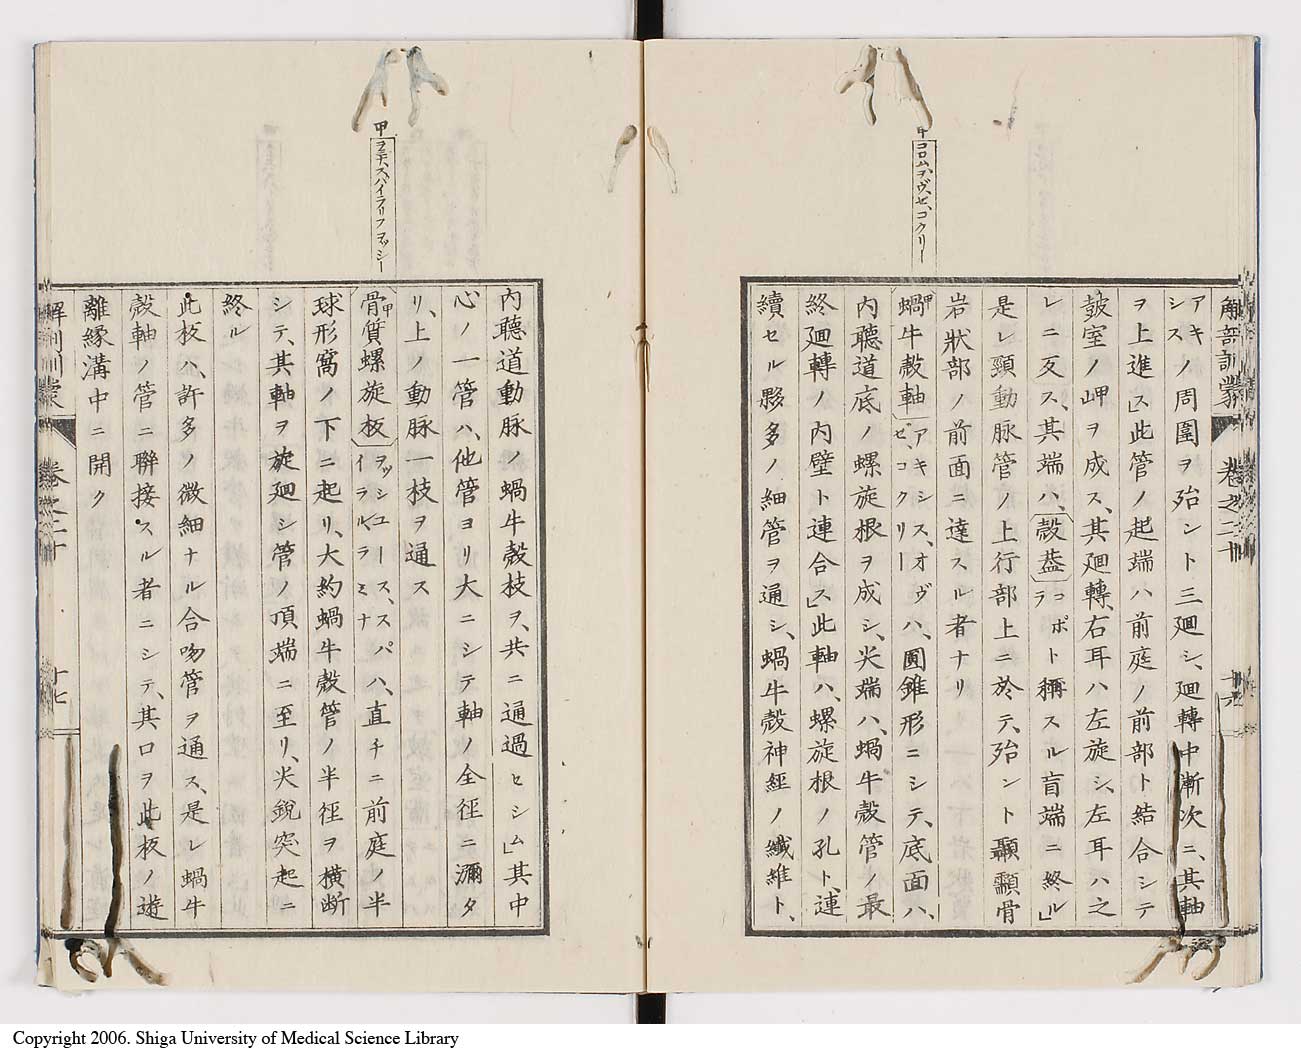 甲 コロムデ、ヴ、ゼ、コクリー
解剖訓蒙 卷之二十 十六
アキシスノ周圍ヲ殆ント三廻シ、廻轉中漸次ニ、其軸
ヲ上進ス」此管ノ起端ハ前庭ノ前部ト結合シテ
鼓室ノ岬ヲ成ス、其廻轉、右耳ハ左旋シ、左耳ハ之
レニ反ス、其端ハ、殼葢コポラト稱スル盲端ニ終ル」
是レ頸動脉管ノ上行部上ニ於テ、殆ント顳顬骨
岩狀部ノ前面ニ達スル者ナリ
甲蝸牛殼軸アキシス、オヴ、ゼ、コクリーハ、圓錐形ニシテ、底面ハ、
內聽道底ノ螺旋根ヲ成シ、尖端ハ、蝸牛殼管ノ最
終廻轉ノ內壁ト連合ス」此軸ハ、螺旋根ノ孔ト、連
續セル夥多ノ細管ヲ通シ、蝸牛殼神經ノ纖維ト、
甲 ヲステ、スパイラリフヲッシー
內聽道動脉ノ蝸牛殼枝ヲ、共ニ通過セシム」其中
心ノ一管ハ、他管ヨリ大ニシテ軸ノ全徑ニ瀰タ
リ、上ノ動脉一枝ヲ通ス
甲骨質螺旋板ヲッシユース、スパイラルラミナハ、直チニ前庭ノ半
球形窩ノ下ニ起リ、大約蝸牛殼管ノ半徑ヲ橫斷
シテ、其軸ヲ旋廻シ管ノ頂端ニ至リ、尖銳突起ニ
終ル
此板ハ、許多ノ微細ナル合吻管ヲ通ス、是レ蝸牛
殼軸ノ管ニ聯接スル者ニシテ、其口ヲ此板ノ遊
離緣溝中ニ開ク
解剖訓蒙 卷之二十 十七
Copyright 2006. Shiga University of Medical Science Library